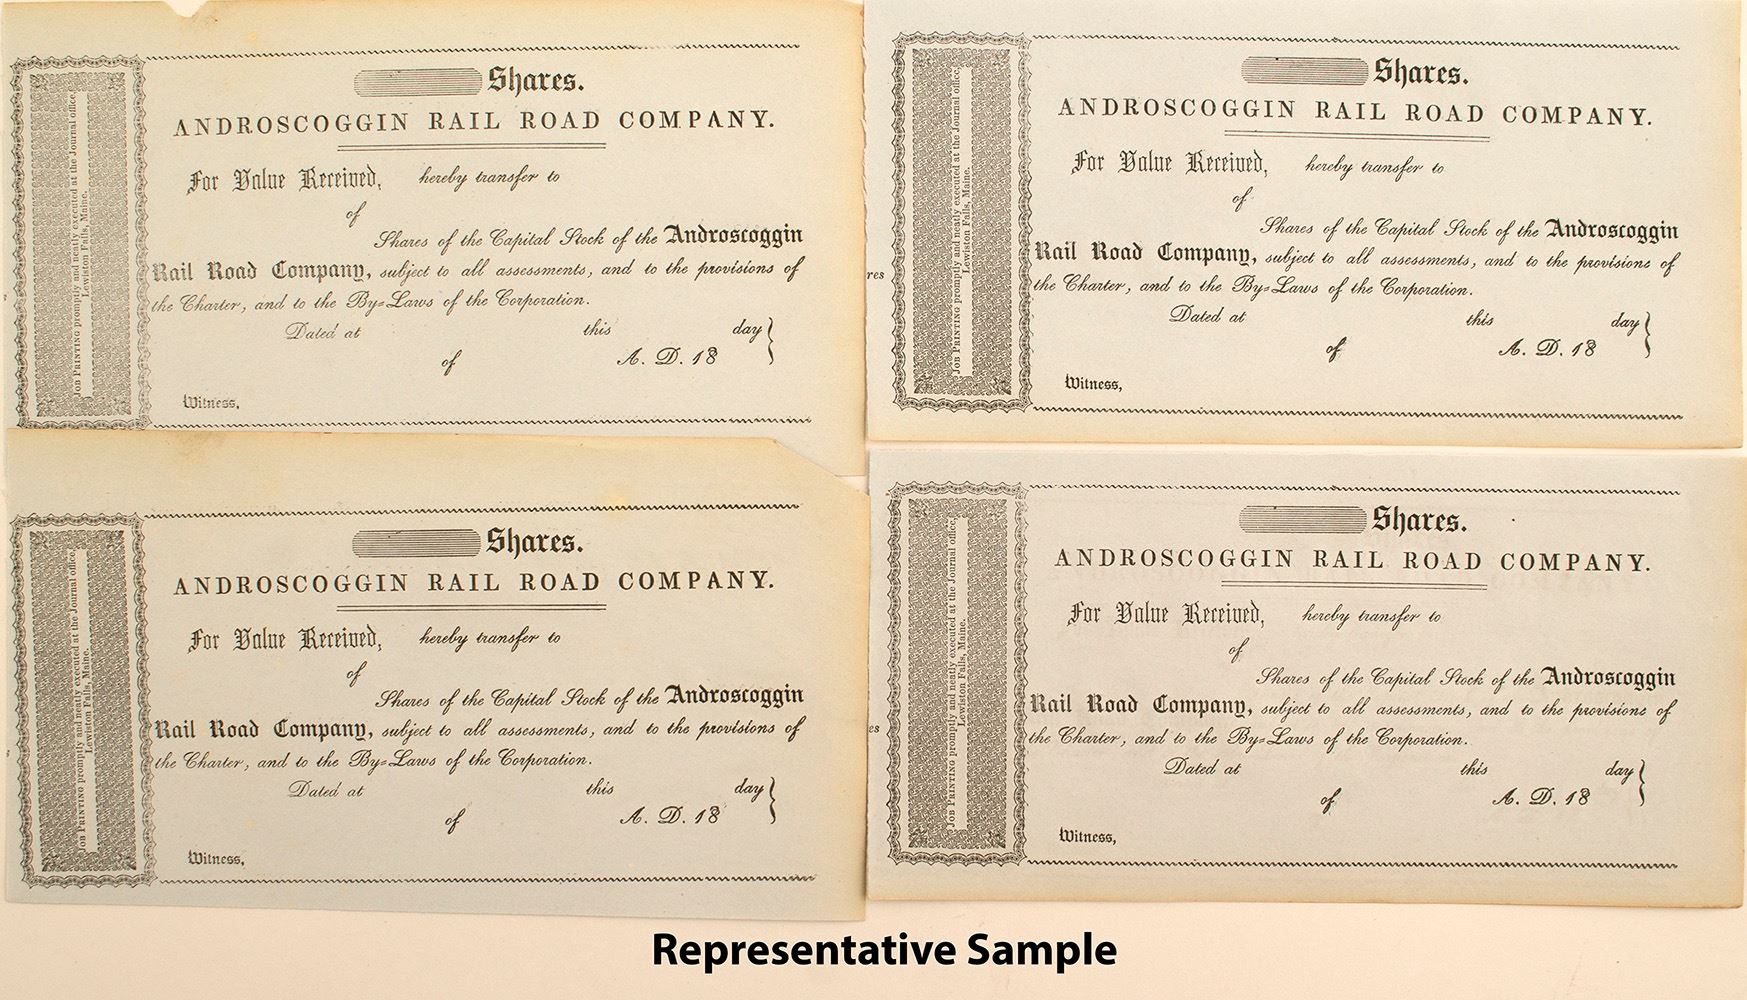 Shares.
ANDROSCOGGIN RAIL ROAD COMPANY.
For Value Received, hereby transfer to
of
Shares of the Capital Stock of the Androscoggin
Rail Road Company, subject to all assessments, and to the provisions of
the Charter, and to the By=Laws of the Corporation.
Dated at this day
of A. D. 18
Witness,
Job Printing promptly and neatly executed at the Journal office,
Lewiston Falls, Maine.
Shares.
ANDROSCOGGIN RAIL ROAD COMPANY.
For Value Received, hereby transfer to
of
Shares of the Capital Stock of the Androscoggin
Rail Road Company, subject to all assessments, and to the provisions of
the Charter, and to the By=Laws of the Corporation.
Dated at this day
of A. D. 18
Witness,
Job Printing promptly and neatly executed at the Journal office,
Lewiston Falls, Maine.
res
Shares.
ANDROSCOGGIN RAIL ROAD COMPANY.
For Value Received, hereby transfer to
of
Shares of the Capital Stock of the Androscoggin
Rail Road Company, subject to all assessments, and to the provisions of
the Charter, and to the By=Laws of the Corporation.
Dated at this day
of A. D. 18
Witness,
Job Printing promptly and neatly executed at the Journal office,
Lewiston Falls, Maine.
Shares.
ANDROSCOGGIN RAIL ROAD COMPANY.
For Value Received, hereby transfer to
of
Shares of the Capital Stock of the Androscoggin
Rail Road Company, subject to all assessments, and to the provisions of
the Charter, and to the By=Laws of the Corporation.
Dated at this day
of A. D. 18
Witness,
Job Printing promptly and neatly executed at the Journal office,
Lewiston Falls, Maine.
es
Representative Sample